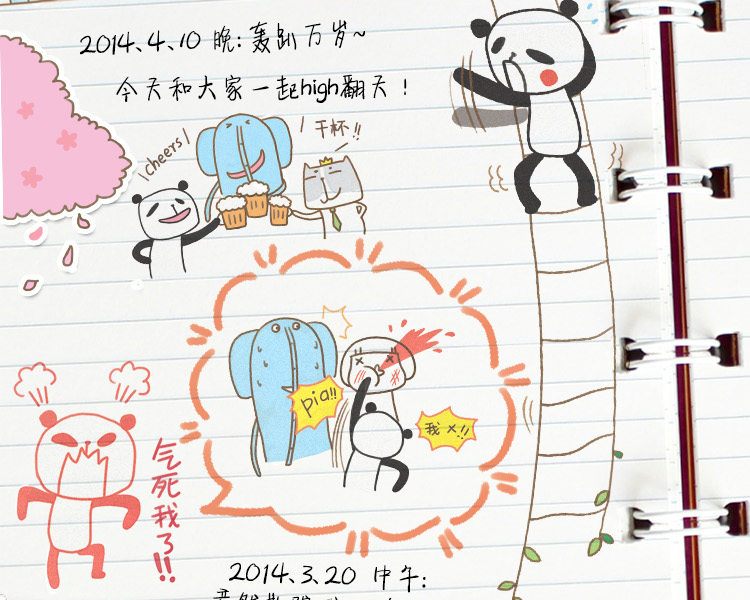 2014、4、10 晚:轰趴万岁~
今天和大家一起high翻天！
cheers
干杯!!
pia!!
我×!!
气死我了!!
2014、3、20 中午: